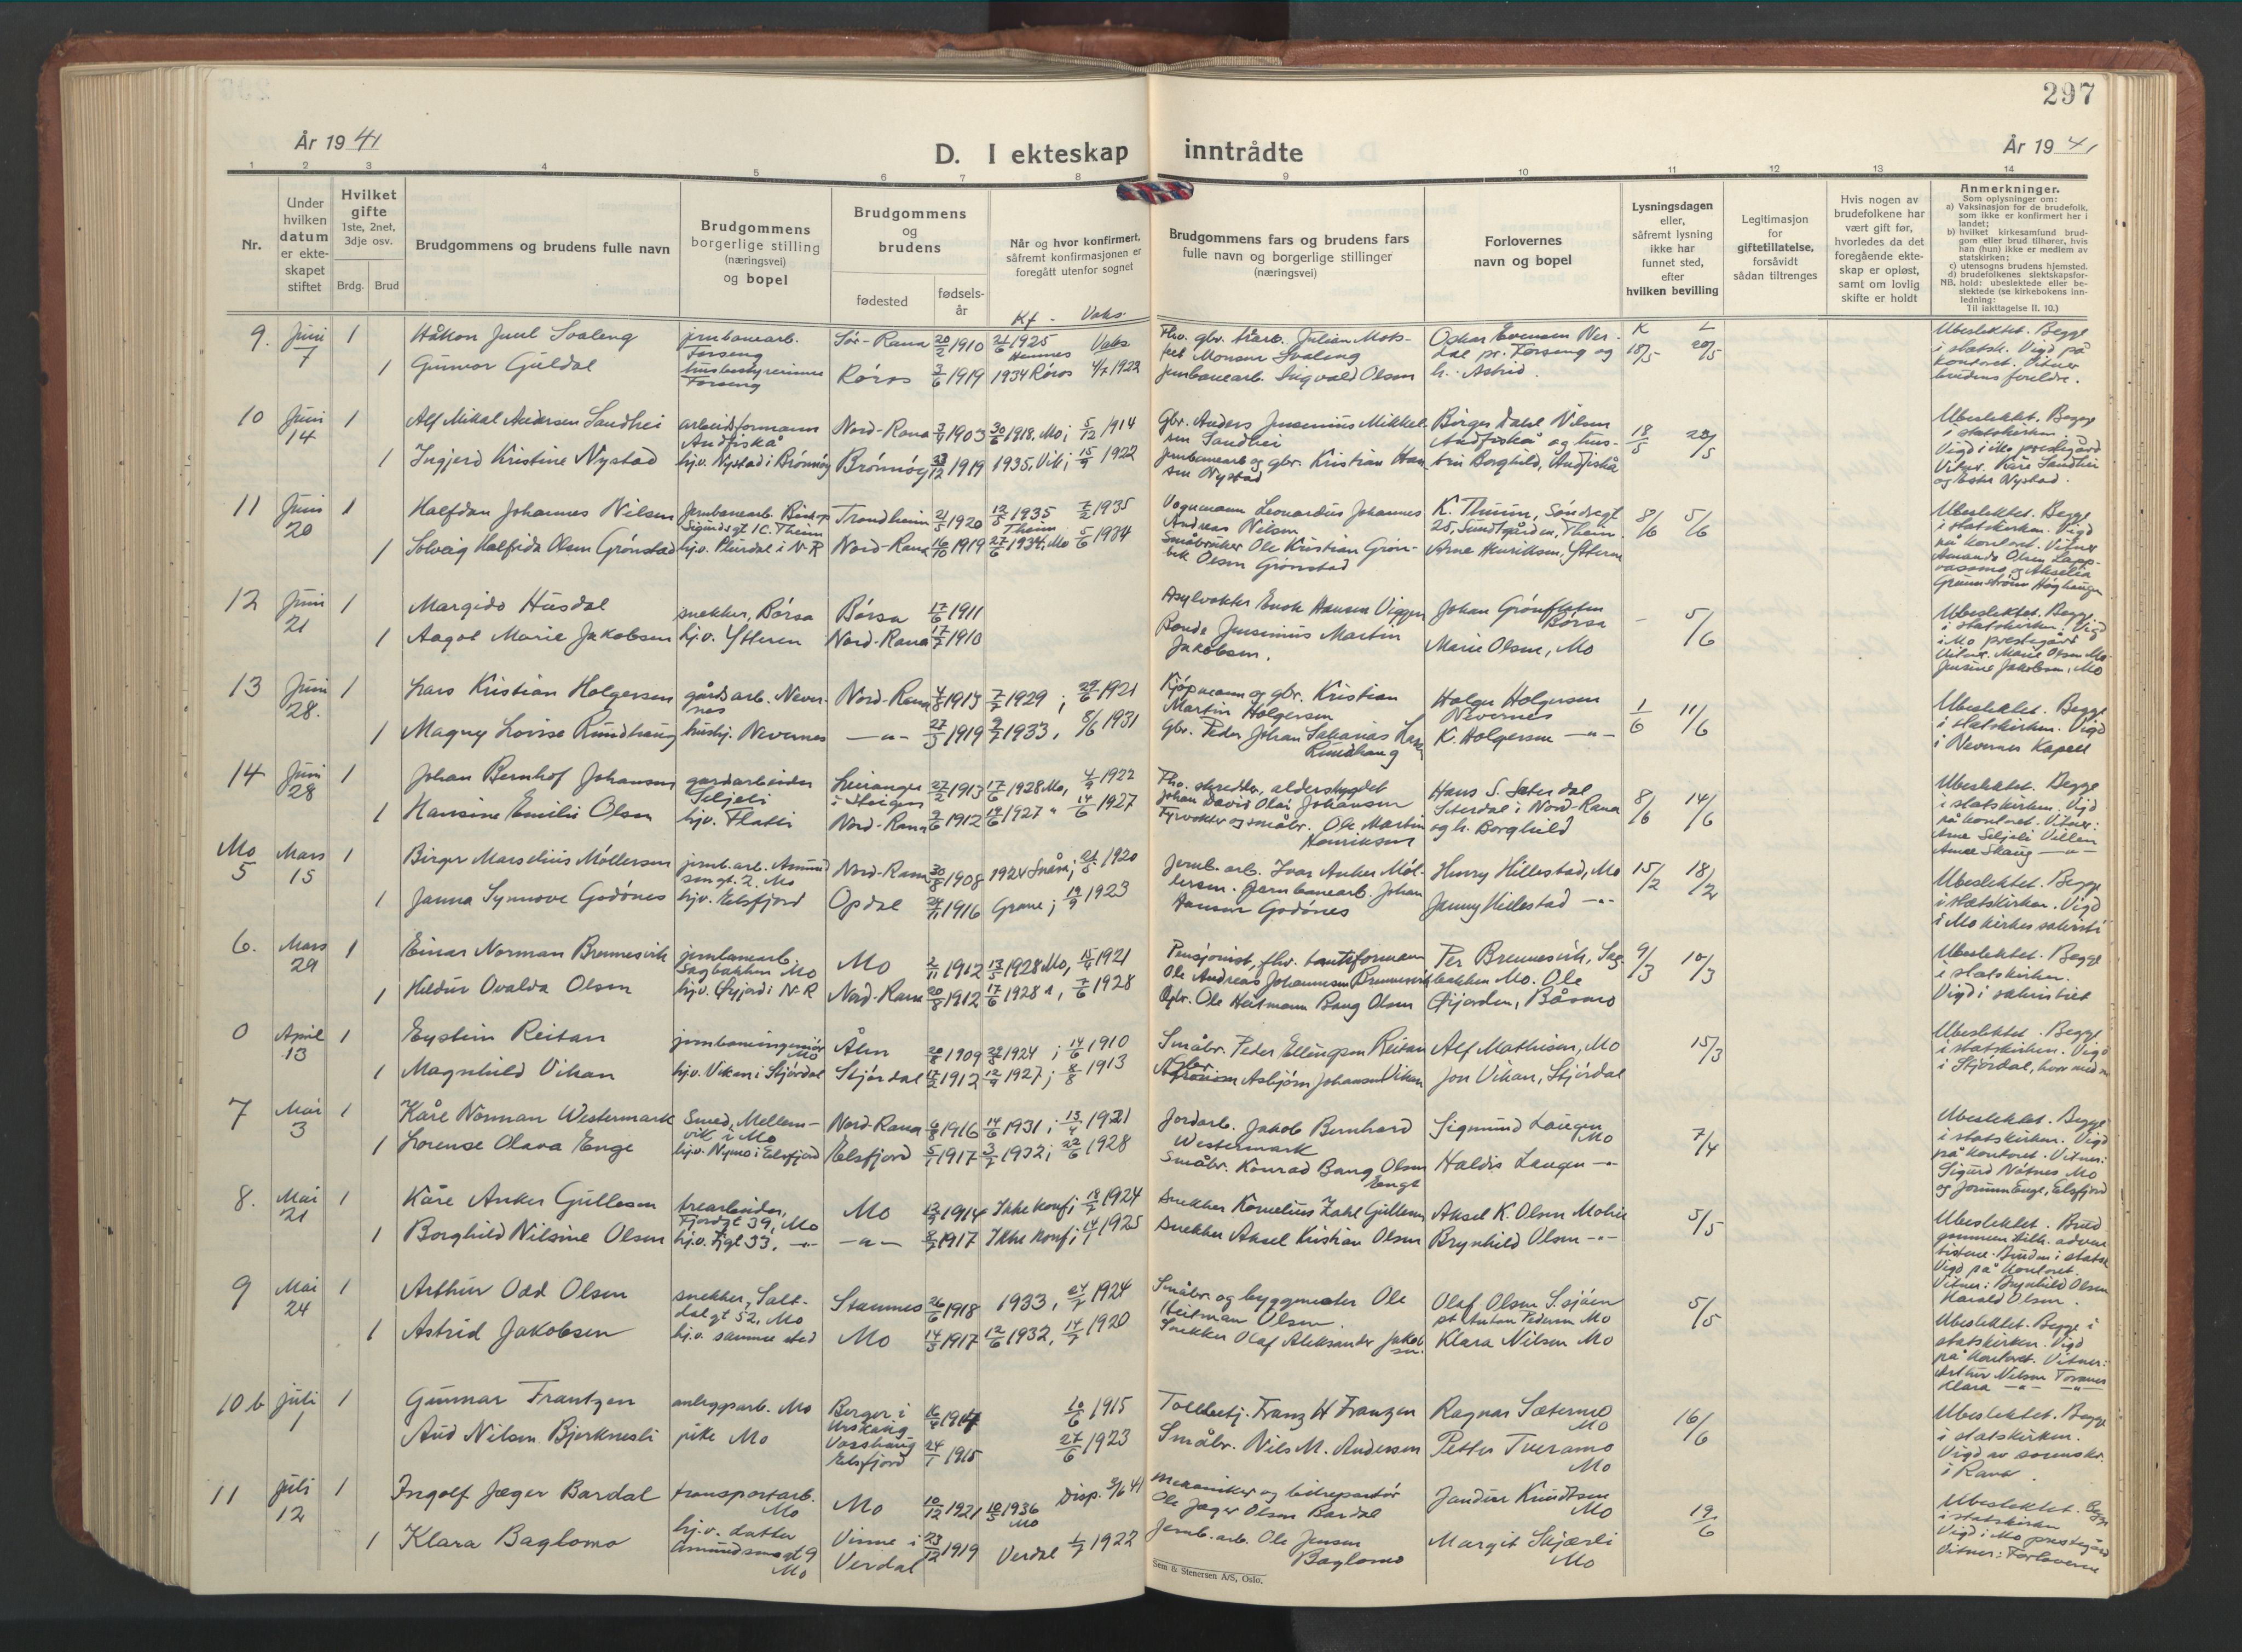 297
År 1941
D. I ekteskap inntrådte
År 1941
1 2 3 4 5 6 7 8 9 10 11 12 13 14
Nr.
Under hvilken datum er ekteskapet stiftet
Hvilket gifte
1ste, 2net, 3dje osv.
Brdg. Brud
Brudgommens og brudens fulle navn
Brudgommens borgerlige stilling (næringsvei) og bopel
Brudgommens og brudens
fødested
fødselsår
Når og hvor konfirmert, såfremt konfirmasjonen er foregått utenfor sognet
Kf. Vaks.
Brudgommens fars og brudens fars fulle navn og borgerlige stillinger (næringsvei)
Forlovernes navn og bopel
Lysningsdagen eller, såfremt lysning ikke har funnet sted, efter hvilken bevilling
Legitimasjon for giftetillatelse, forsåvidt sådan tiltrenges
Hvis nogen av brudefolkene har vært gift før, hvorledes da det foregående ekteskap er opløst, samt om lovlig skifte er holdt
Anmerkninger.
Som oplysninger om:
a) Vaksinasjon for de brudefolk, som ikke er konfirmert her i landet;
b) hvilket kirkesamfund brudgom eller brud tilhører, hvis han (hun) ikke er medlem av statskirken;
c) utensogns brudens hjemsted.
d) brudefolkenes slektskapsforhold: ubeslektede eller beslektede (se kirkebokens innledning:
NB. Til iakttagelse II. 10.)
9. Juni 7 1 Håkon Juul Svaleng jernbanearb. Forseng Sør-Rana 20/2 1910 21/6 1925 Hemnes Vaks
Fhv. gbr. Mårb. Julian Monsen Svaleng Oskar Evensen Nerdal pr. Forseng og h. Astrid. K 18/5 L 20/5
1 Gunvor Guldal husbestyrerinne Forseng Røros 3/6 1919 1934 Røros 4/7 1922
Jernbanearb. Ingvald Olsen
Ubeslektet. Begge i statsk. Vigd på kontoret. Vitner brudens foreldre.
10 Juni 14 1 Alf Mikal Andersen Sandhei arbeidsformann Andfiskå Nord-Rana 1903 30/6 1918. Mo; 5/12 1914
Gbr. Anders Jensenius Mikkelsen Sandhei Birger Dahl Nilsen Andfiskå og hustru Borghild, Andfiskå 18/5 20/5
1 Ingjerd Kristine Nystad hj.v. Nystad i Brønnøy Brønnøy 1919 1935, Vik; 15/9 1922
Jernbanearb og gbr. Kristian Hansen Nystad
Ubeslektet. Begge i statskirken Vigd i Mo prestegård Vitner. Kåre Sandhei og Ester Nystad.
11 Juni 20 1 Halfdan Johannes Nilsen Jernbanearb. Bisp Sigurdsgt 1C. Theim Trondheim 21/1 1920 12/5 1935 Theim 7/2 1935
Vognmann Leonardus Johannes Andreas Nilsen K. Thuun, Søndregt 25, Sundtgården, Theim. 8/6 5/6
1 Solveig Halfida Olsen Grønstad hj.v. Plurdal i N-R Nord-Rana 16/10 1919 27/6 1934. Mo 5/6 1934
Småbruker Ole Kristian Grønbek Olsen Grønstad Arne Henriksen, Ytteren
Ubeslektet. Begge i statskirken. Vigd på kontoret. Vitner Amanda Olsen
12 Juni 21 1 Margido Husdal snekker, Børsa Børsa 17/6 1911
Asylvokter Enok Hansen Viggen Johan Grønfleten Børsa – 5/6
1 Aagot Marie Jakobsen hj.v. Ytteren Nord-Rana 17/7 1910
Bonde Jensenius Martin Jakobsen. Marie Olsen, Mo
Ubeslektet. Begge i statskirken. Vigd i Mo prestegård Vitner. Marie Olsen Mo. Jensine Jakobsen, Mo
13 Juni 28. 1 Lars Kristian Holgersen gårdsarb. Nevernes Nord-Rana 4/8 1913 7/7 1929; 29/6 1921
Kjøpmann og gbr. Kristian Martin Holgersen Holger Holgersen Nevernes 1/6 11/6
1 Magny Lovise Rundhaug hushj. Nevernes –"– 27/3 1919 2/7 1933, 8/6 1931
Gbr. Peder Johan Sakarias Rundhaug K. Holgersen –"–
Ubeslektet. Begge i statskirken. Vigd i Nevernes Kapell
14 Juni 28 1 Johan Bernhof Johansen gardarbeider Seljeli Leiranger i Steigen 27/2 1913 17/6 1928 Mo, 4/9 1922
Fhv. skredder, alderstrygdet Johan David Olai Johansen Hans S. Sæterdal Sæterdal i Nord-Rana og h. Borghild 8/6 14/6
1 Hansine Emilie Olsen hjv. Flatti Nord-Rana 1912 1927 " 14/6 1927
Fyrvokter og småbr. Ole Martin Henriksen
Ubeslektet. Begge i statskirken. Vigd på kontoret. Vitner: Arne Seljeli Arnee Skaug –"–
Mo 5 Mars 15 1 Birger Marselius Møllersen jernb.arb. Amundsengt. 2. Mo Nord-Rana 30/8 1908 1924 Snåsa; 1920
Jernb. arb. Ivar Anker Møllersen. Harry Hillestad, Mo 15/2 18/2
1 Janna Synnøve Godønes hj.v. Elsfjord Opdal 24/11 1916 Grane; 19/9 1923
Jernbanearb. Johan Hansen Godønes Janny Hillestad –"–
Ubeslektet. Begge i statskirken. Vigd i Mo kirkes sakristi
6. Mars 29 1 Einar Norman Brennesvik jernbanearb. Sagbakken Mo Mo 2/11 1912 13/5 1928 Mo, 15/4 1921
Pensjonist, fhv. Ole Andreas Johannesen Brennesvik Per Brennesvik, Sagbakken Mo. 9/3 10/3
1 Hildur Ovalda Olsen hj.v. Øijord i N-R Nord-Rana 20/5 1912 17/6 1928 ", 7/6 1928
Gbr. Ole Heitmann Bang Olsen Ole Øijorden, Båsmo
Ubeslektet. Begge i statskirken. Vigd i sakristiet
0 April 13 1 Eystein Reitan jernbaneingeniør Mo Ålen 20/8 1909 1924; 14/6 1910
Småbr. Peder Ellingsen Reitan Alf Mathisen, Mo 15/3
1 Magnhild Vikan hj.v. Vikan i Stjørdal Stjørdal 17/2 1912 12/9 1927; 8/8 1913
Gbr. Asbjørn Johansen Vikan Jon Vikan, Stjørdal
Ubeslektet. Begge i statskirken. Vigd i Stjørdal,
7 Mai 3 1 Kåre Norman Westermark Smed, Mellemvik i Mo Nord-Rana 6/8 1916 14/6 1931; 13/4 1921
Jordarb. Jakob Bernhard Westermark Sigmund Laugen Mo 7/4
1 Lorense Olava Enge hj.v. Nymo i Elsfjord Elsfjord 5/1 1917 3/7 1932; 22/6 1928
Småbr. Konrad Bang Olsen Enge Haldis Laugen –"–
Ubeslektet. Begge i statskirken. Vigd på kontoret. Vitner: Sigurd Nøtnes Mo og Jorunn Enge, Elsfjord
8. Mai 21 1 Kåre Anker Gullesen trearbeider, Fjordgt 39, Mo Mo 1914 Ikke konf; 18/7 1924
Snekker Kornelius Zahl Gullesen Aksel K. Olsen Moheia 5/5
1 Borghild Nilsine Olsen hj.v. Fjgt 33. –"– –"– 1917 Ikke konf; 14/7 1925
Snekker Aksel Kristian Olsen Brynhild Olsen –"–
Ubeslektet. Brudgommen tilh. adventistene. Bruden i statsk Vigd på kontoret. Vitner: Brynhild Olsen Harald Olsen.
9 Mai 24 1 Arthur Odd Olsen snekker, Saltdalgt 52, Mo Stamnes 26/6 1918 1933, 27/7 1924
Småbr og byggmester Ole Heitman Olsen. Olaf Olsen S.sjøen pt Anton Pedersen Mo 5/5
1 Astrid Jakobsen hj.v. samme sted Mo 14/3 1917 12/6 1932, 14/7 1920
Snekker Olaf Aleksander Jakobsen. Klara Nilsen Mo
Ubeslektet. Begge i statskirken. Vigd på kontoret. Vitner: Arthur Nilsen Klara –"– –"–
10 b Juli 1 1 Gunnar Frantzen anleggsarb. Mo Berger i Urskaug 16/4 1914 10/6 1915
Tollbetj. Franz H Franzen Ragnar Sætermo Mo 16/6
Aud Nilsen Bjerknesli pike Mo Vasshaug Elsfjord 24/1 1915 27/6 1923
Småbr. Nils M. Andersen Petter Tveramo Mo
Ubeslektet. Begge i statskirken. Vigd av sorenskr. i Rana.
11 Juli 12 1 Ingolf Jæger Bardal transportarb. Mo Mo 10/12 1921 10/5 1936 Mo Disp. 3/6 41
Mekaniker og bilreparatør Ole Jæger Olsen Bardal Jandur Knudtsen Mo 19/6
1 Klara Baglomo hj.v. datter Amundsensgt 9 Mo Vinne i Verdal 23/12 1919 Verdal 1/7 1922
Jernb.arb. Ole Jensen Baglomo Margit Skjærli Mo
Ubeslektet. Begge i statskirken Vigd i Mo prestegård Vitner: Forloverne
Sem & Stenersen A/S, Oslo.